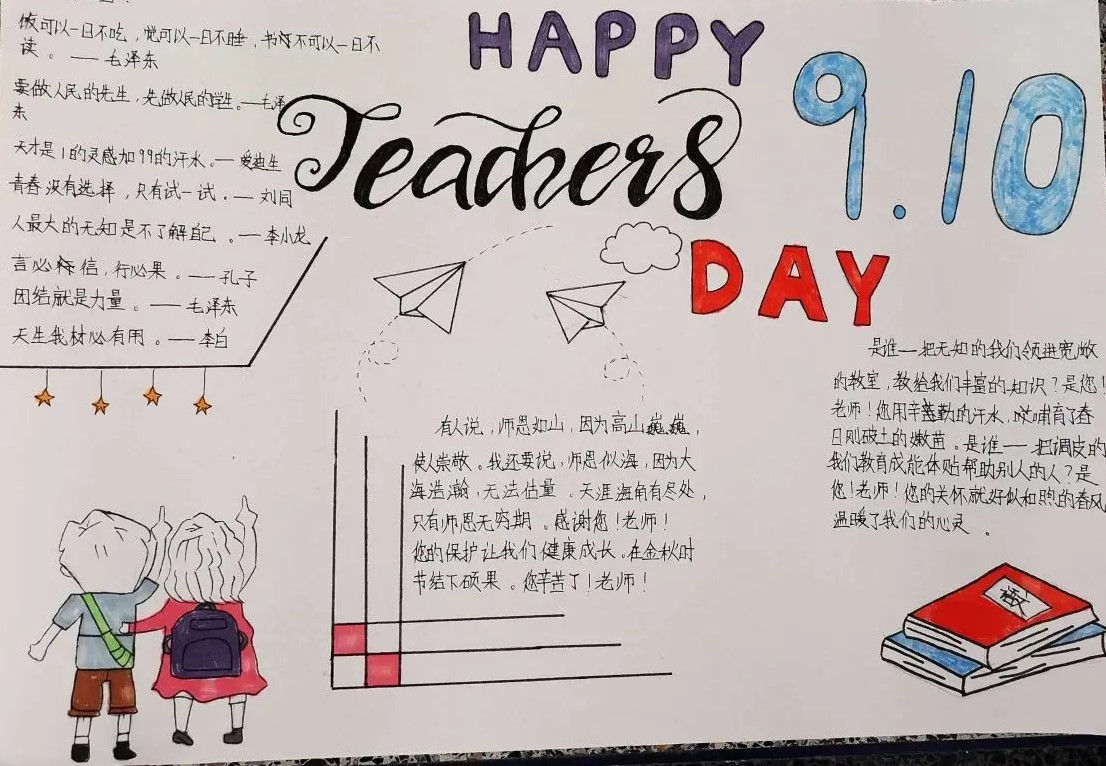 饭可以一日不吃，觉可以一日不睡，书不可以一日不
读。——毛泽东
要做人民的先生，先做人民的学生。——毛泽
东
天才是1的灵感加99的汗水。——爱迪生
青春没有选择，只有试一试。——刘同
人最大的无知是不了解自己。——李小龙
言必信，行必果。——孔子
团结就是力量。——毛泽东
天生我材必有用。——李白
HAPPY
Teachers
DAY
9.10
有人说，师恩如山，因为高山巍巍，
使人崇敬。我还要说，师恩似海，因为大
海浩瀚，无法估量。天涯海角有尽处，
只有师恩无穷期。感谢您！老师！
您的保护让我们健康成长。在金秋时
节结下硕果。您辛苦了！老师！
是谁——把无知的我们领进宽敞
的教室，教给我们丰富的知识？是您！
老师！您用辛勤的汗水，哺育了春
日刚破土的嫩苗。是谁——把调皮的
我们教育成能体贴帮助别人的人？是
您！老师！您的关怀就好似和煦的春风，
温暖了我们的心灵。
语文